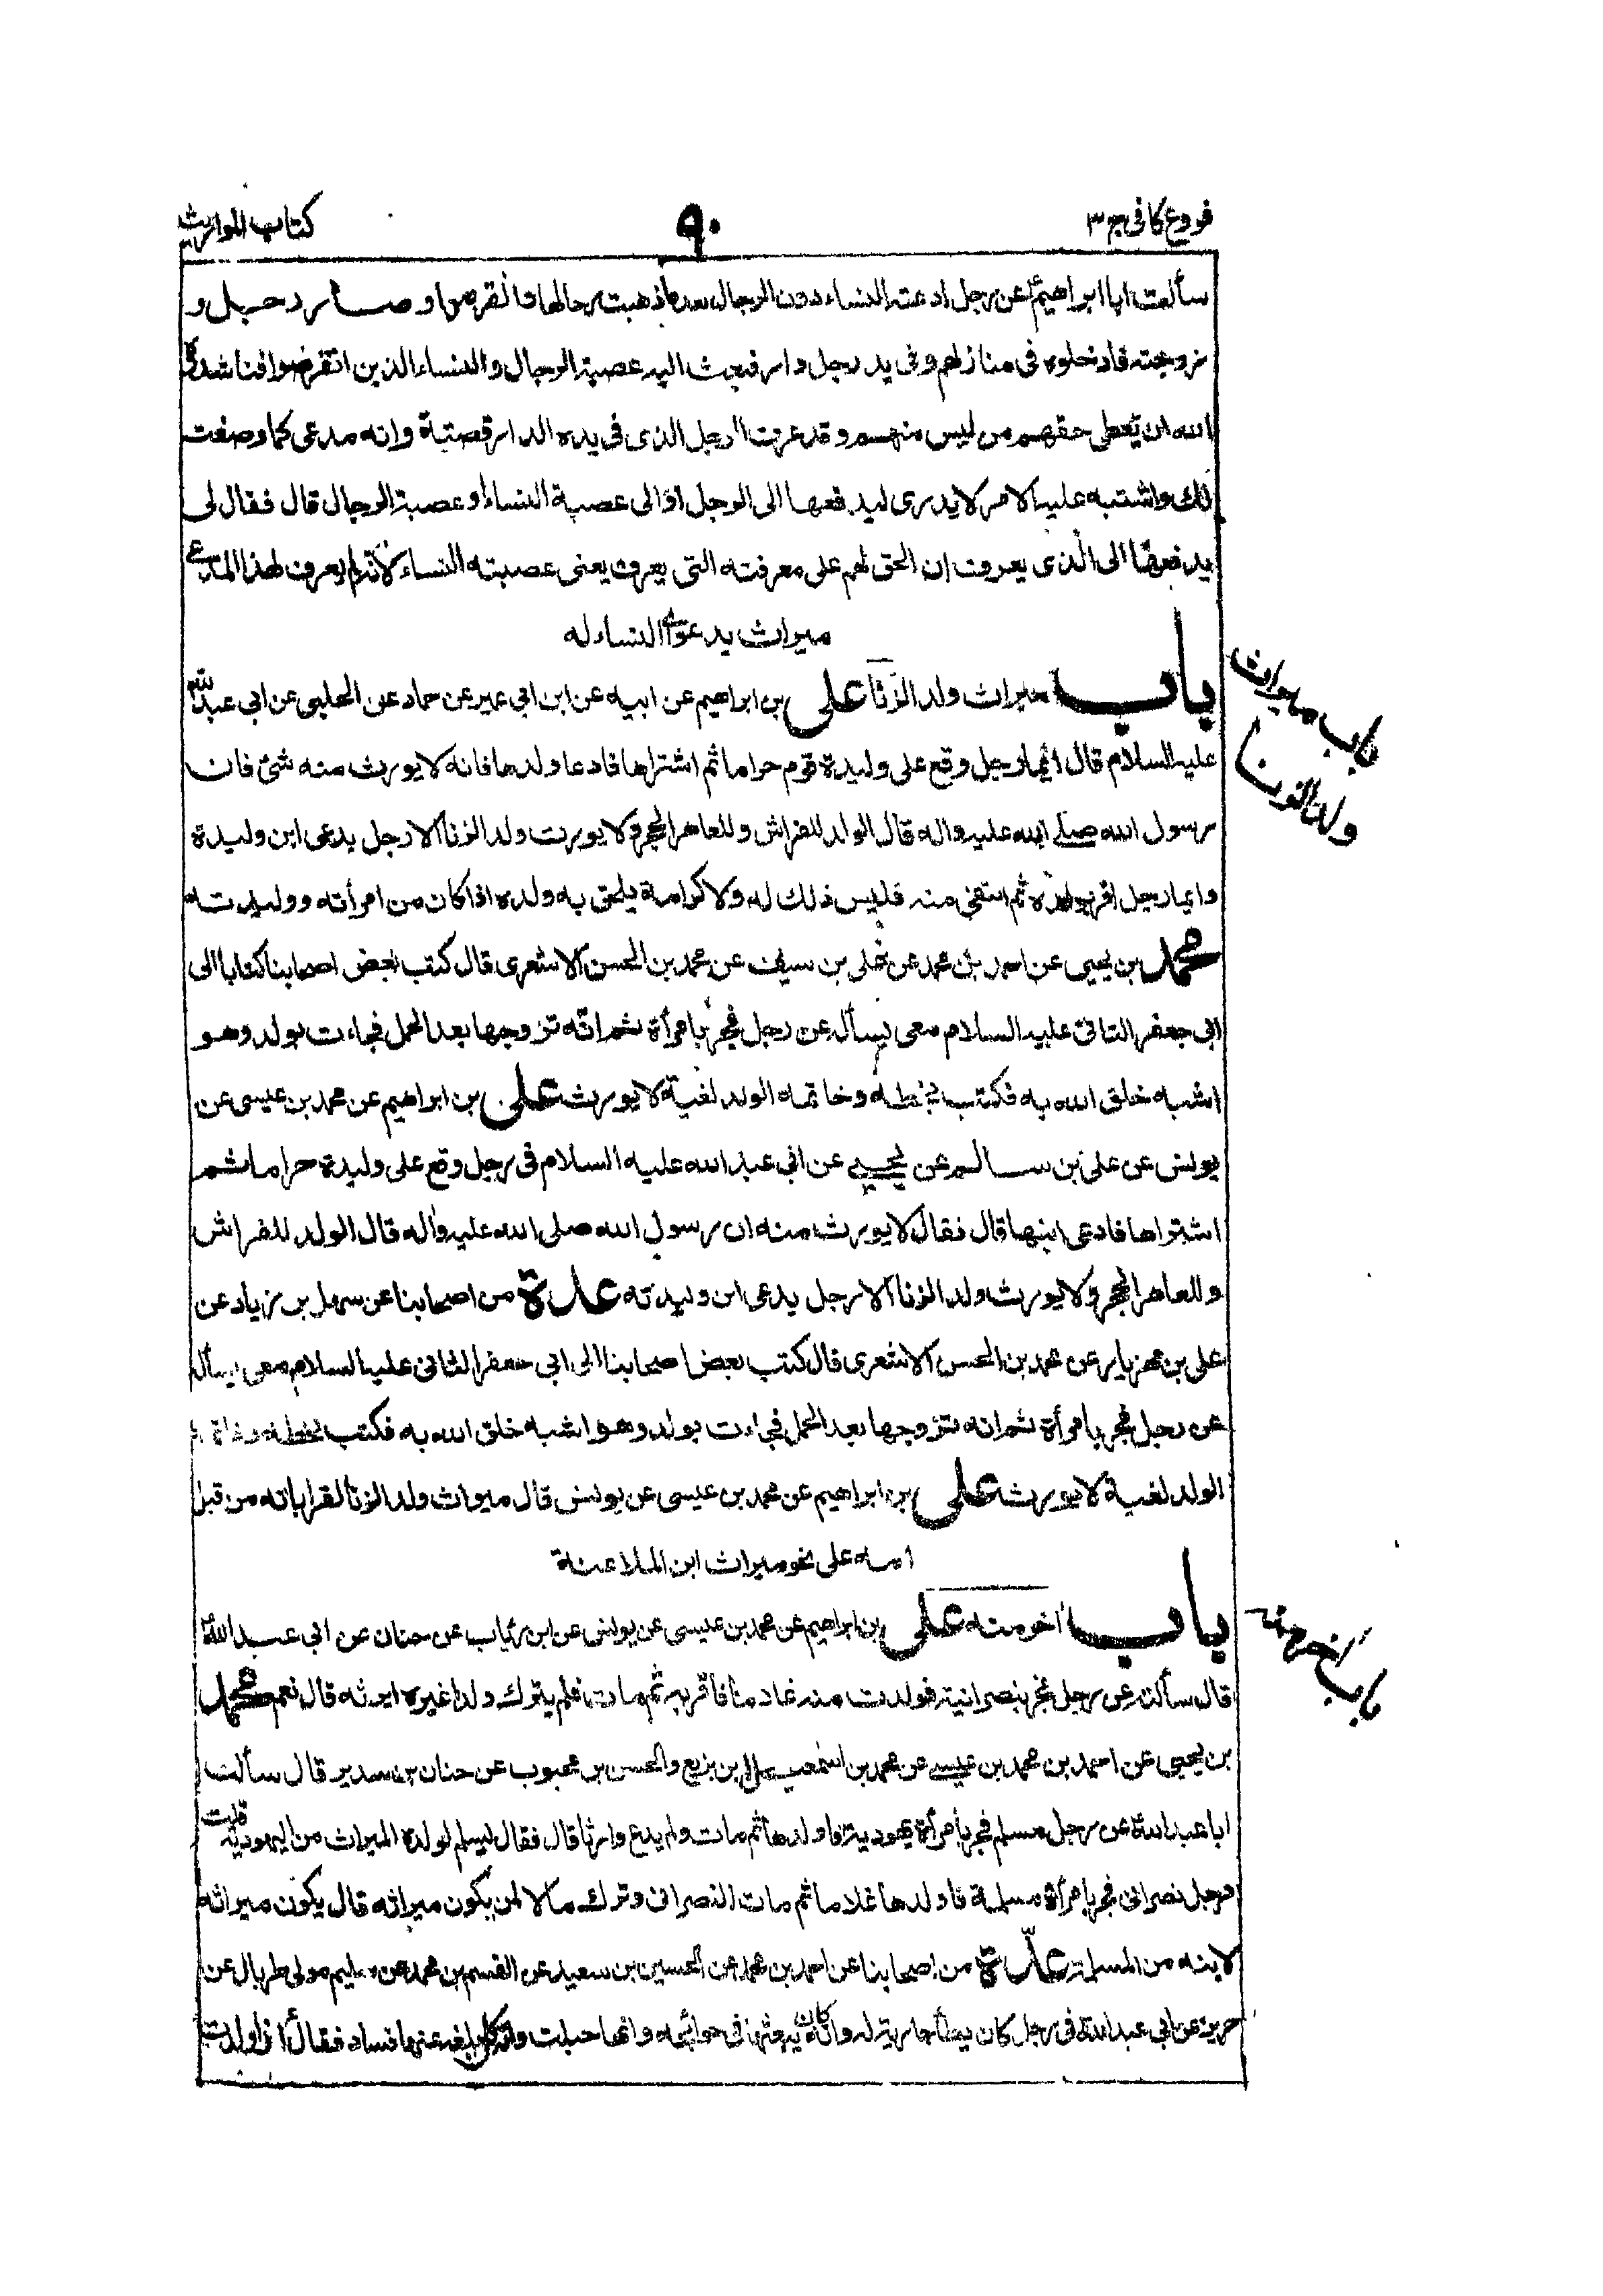 فروع كافى ج ٣
٩٠
كتاب المواريث
سألت ابا ابراهيمؑ عن رجل ادعته النساء دون الرجال بعد ما ذهبت رجالها وانقرضوا وصار رجل و
زوجته فادخلوه فى منازلهم وفى يد رجل دار فبعث اليه عصبة الرجال والنساء الذين انقرضوا فناشدوه
الله ان يعطى حقهم من ليس منهم وقد عرف الرجل الذى فى يده الدار قصته وانه مدعى كما وصفت
لك واشتبه عليه الامر لا يدرى ليدفعها الى الرجل او الى عصبة النساء او عصبة الرجال قال فقال لى
يدفعها الى الذى يعرف ان الحق لهم على معرفته التى يعرف يعنى عصبته النساء لانه لم يعرف لهذا المدعى
ميراث بدعوى النساء له
باب ميراث ولد الزنا على بن ابراهيم عن ابيه عن ابن ابي عمير عن حماد عن الحلبى عن ابي عبد الله
عليه السلام قال ايما رجل وقع على وليدة قوم حراما ثم اشتراها فادعا ولدها فانه لا يورث منه شئ فان
رسول الله صلى الله عليه واله قال الولد للفراش وللعاهر الحجر ولا يورث ولد الزنا الا رجل يدعى ابن وليدة
وايما رجل اقر بولده ثم انتفى منه فليس ذلك له ولا كرامة يلحق به ولده اذا كان من امرأته ووليدته
محمد بن يحيى عن احمد بن محمد عن على بن سيف عن محمد بن الحسن الاشعرى قال كتب بعض اصحابنا كتابا الى
ابى جعفر الثانى عليه السلام معى يسأله عن رجل فجر بامرأة ثم انه تزوجها بعد الحمل فجاءت بولد وهو
اشبه خلق الله به فكتب بخطه وخاتمه الولد لغية لا يورث على بن ابراهيم عن محمد بن عيسى عن
يونس عن على بن سالم عن يحيى عن ابى عبد الله عليه السلام فى رجل وقع على وليدة حراما ثم
اشتراها فادعى ابنها قال فقال لا يورث منه ان رسول الله صلى الله عليه واله قال الولد للفراش
وللعاهر الحجر ولا يورث ولد الزنا الا رجل يدعى ابن وليدته عدة من اصحابنا عن سهل بن زياد عن
على بن مهزيار عن محمد بن الحسن الاشعرى قال كتب بعض اصحابنا الى ابى جعفر الثانى عليه السلام معى يسأله
عن رجل فجر بامرأة ثم انه تزوجها بعد الحمل فجاءت بولد وهو اشبه خلق الله به فكتب بخطه وخاتمه
الولد لغية لا يورث على بن ابراهيم عن محمد بن عيسى عن يونس قال ميراث ولد الزنا لقراباته من قبل
امه على نحو ميراث ابن الملاعنة
باب اخر منه على بن ابراهيم عن محمد بن عيسى عن يونس عن ابن رئاب عن حنان عن ابي عبد اللهؑ
قال سألته عن رجل فجر بنصرانية فولدت منه غلاما فاقر به ثم مات فلم يترك ولدا غيره ايرثه قال نعم محمد
بن يحيى عن احمد بن محمد بن عيسى عن محمد بن اسمعيل بن بزيع والحسن بن محبوب عن حنان بن سدير قال سألت
ابا عبد اللهؑ عن رجل مسلم فجر بامرأة يهودية فاولدها ثم مات ولم يدع وارثا قال فقال يسلم لولده الميراث من اليهودية قلت
فرجل نصرانى فجر بامرأة مسلمة فاولدها غلاما ثم مات النصرانى وترك مالا لمن يكون ميراثه قال يكون ميراثه
لابنه من المسلمة عدة من اصحابنا عن احمد بن محمد عن الحسين بن سعيد عن القسم بن محمد عن سليم مولى طربال عن
حريز عن ابي عبد اللهؑ فى رجل كان يطأ جارية له وانه كان يبعثها فى حوائجه وانها حبلت وانه بلغه عنها فساد فقال اذا ولدت
باب ميراث
ولد الزنا
باب اخر منه